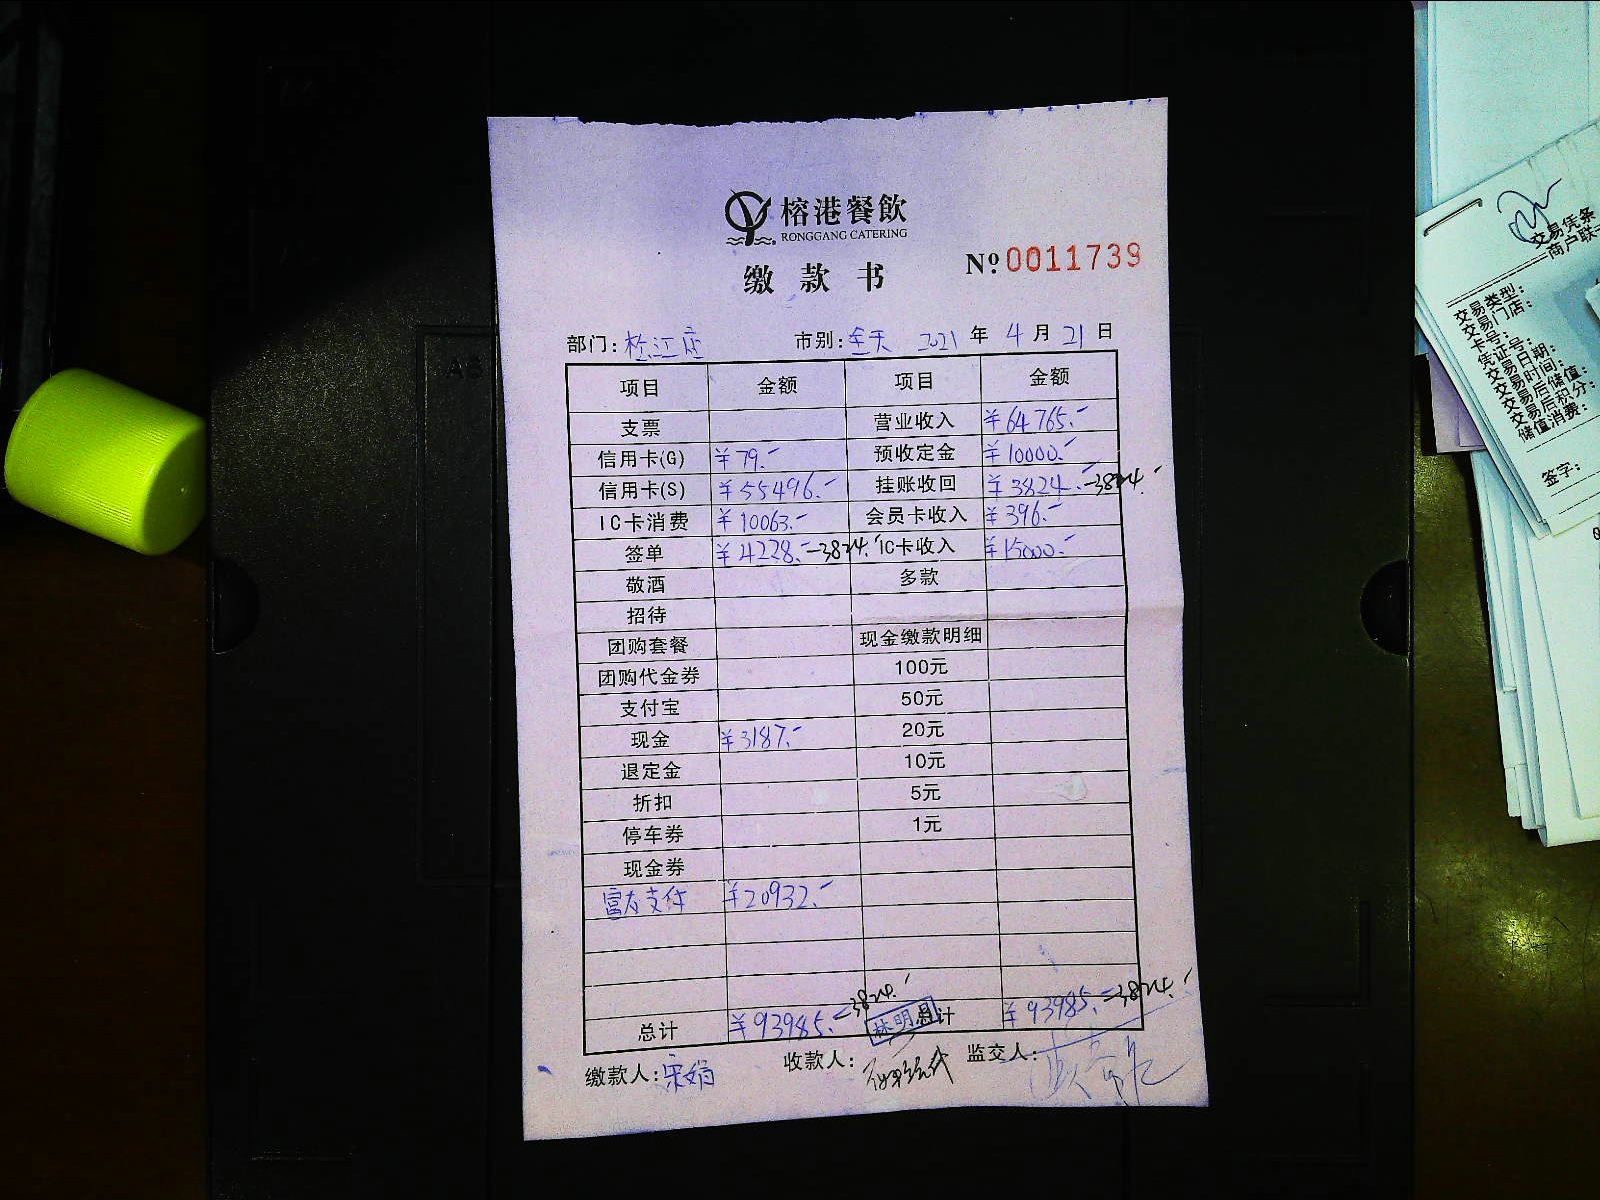 榕港餐飲
RONGGANG CATERING
缴款书
№ 0011739
部门: 松江店 市别: 全天 2021 年 4 月 21 日
项目 金额 项目 金额
支票 营业收入 ¥64765.-
信用卡(G) ¥79.- 预收定金 ¥10000.-
信用卡(S) ¥55496.- 挂账收回 ¥3824.- -3824.-
IC卡消费 ¥10063.- 会员卡收入 ¥396.-
签单 ¥4228.- -3824.- IC卡收入 ¥15000.-
敬酒 多款
招待
团购套餐 现金缴款明细
团购代金券 100元
支付宝 50元
现金 ¥3187.- 20元
退定金 10元
折扣 5元
停车券 1元
现金券
富友支付 ¥20932.-
总计 ¥93985.- -3824.- 总计 ¥93985.- -3824.-
林明
缴款人: 宋娟 收款人: 监交人:
交易凭条
商户联
交易类型:
交易门店:
卡号:
凭证号:
交易日期:
交易时间:
交易后储值:
交易后积分:
储值消费:
签字: